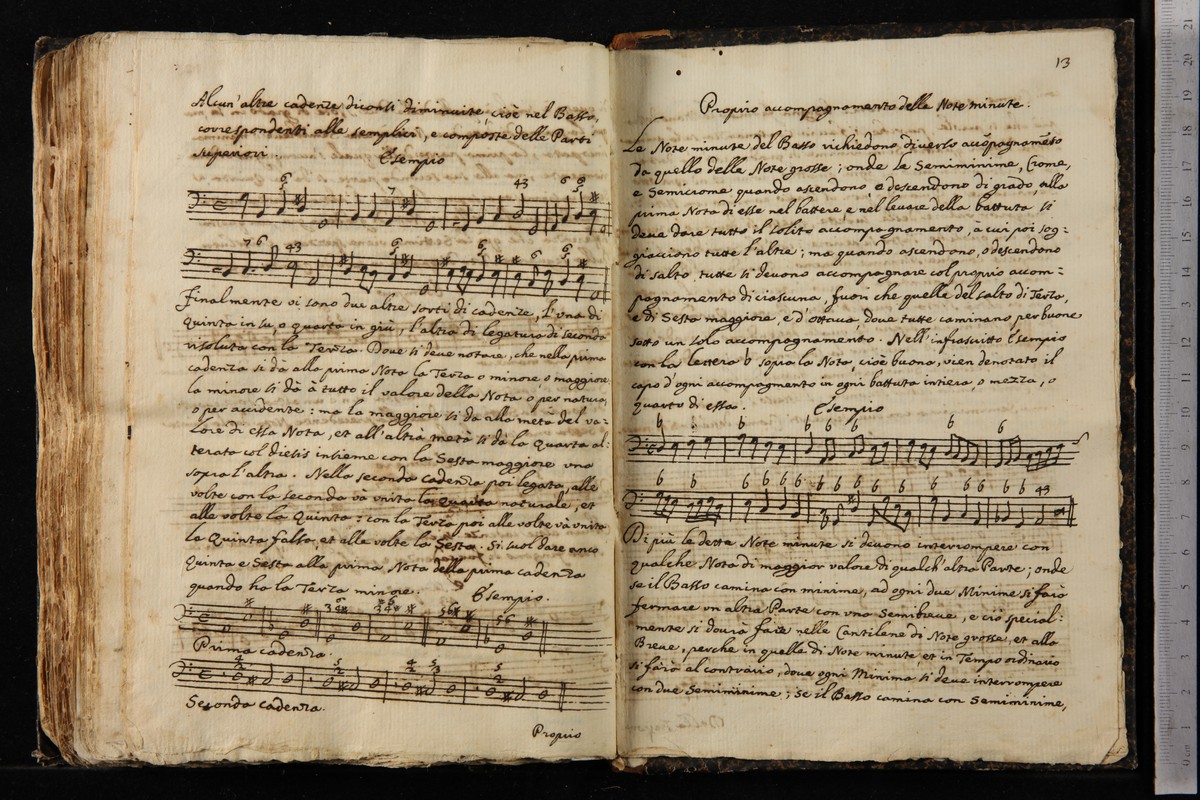 Alcun'altre cadenze diconsi diminuite, cioè nel Basso,
corrispondenti alle semplici, e composte delle Parti
superiori.
Esempio
Finalmente vi sono due altre sorti di cadenze, l'una di
Quinta in su, o quarta in giù, l'altra di legatura di seconda
risoluta con la Terza. Dove si deve notare, che nella prima
cadenza si dà alla prima Nota la Terza o minore o maggiore:
la minore si dà à tutto il valore della Nota o per natura,
o per accidente: ma la maggiore si dà alla metà del va=
lore di essa Nota, et all'altra metà si dà la Quarta al:
terata col diesis insieme con la Sesta maggiore una
sopra l'altra. Nella seconda cadenza poi legata, alle
volte con la seconda va unita la Quarta naturale, et
alle volte la Quinta: con la Terza poi alle volte và unita
la Quinta falsa, et alle volte la Sesta. Si suol dare anco
Quinta e Sesta alla prima Nota della prima cadenza
quando ha la Terza minore.
Esempio.
Prima cadenza.
Seconda cadenza.
Proprio
13
Proprio accompagnamento delle Note minute.
Le Note minute del Basso richiedono diverso accõpagnamẽto
da quello delle Note grosse; onde le Semiminime, Crome,
e Semicrome quando ascendono e descendono di grado alla
prima Nota di esse nel battere, e nel levare della battuta si
deve dare tutto il solito accompagnamento, à cui poi sog:
giacciono tutte l'altre; ma quando ascendono, o descendono
di salto, tutte si devono accompagnare col proprio accom=
pagnamento di ciascuna, fuor che quelle del salto di Terza,
e di Sesta maggiore, e d'ottava, dove tutte caminano per buone
sotto un solo accompagnamento. Nell'infrascritto Esempio
con la lettera b sopra la Nota, cioè buona, vien denotato il
capo d'ogni accompagmento in ogni battuta intiera, o mezza, o
quarto di essa.
Esempio
Di più le dette Note minute si devono interrompere con
qualche Nota di maggior valore di qualch'altra Parte; onde
se il Basso camina con minime, ad ogni due Minime si farà
fermare un altra Parte con una Semibreve, e ciò special-
mente si dovrà fare nelle Cantilene di Note grosse, et alla
Breve, perche in quelle di Note minute, et in Tempo ordinario
si farà al contrario, dove ogni Minima si deve interrompere
con due Semiminime; se il Basso camina con Semiminime,